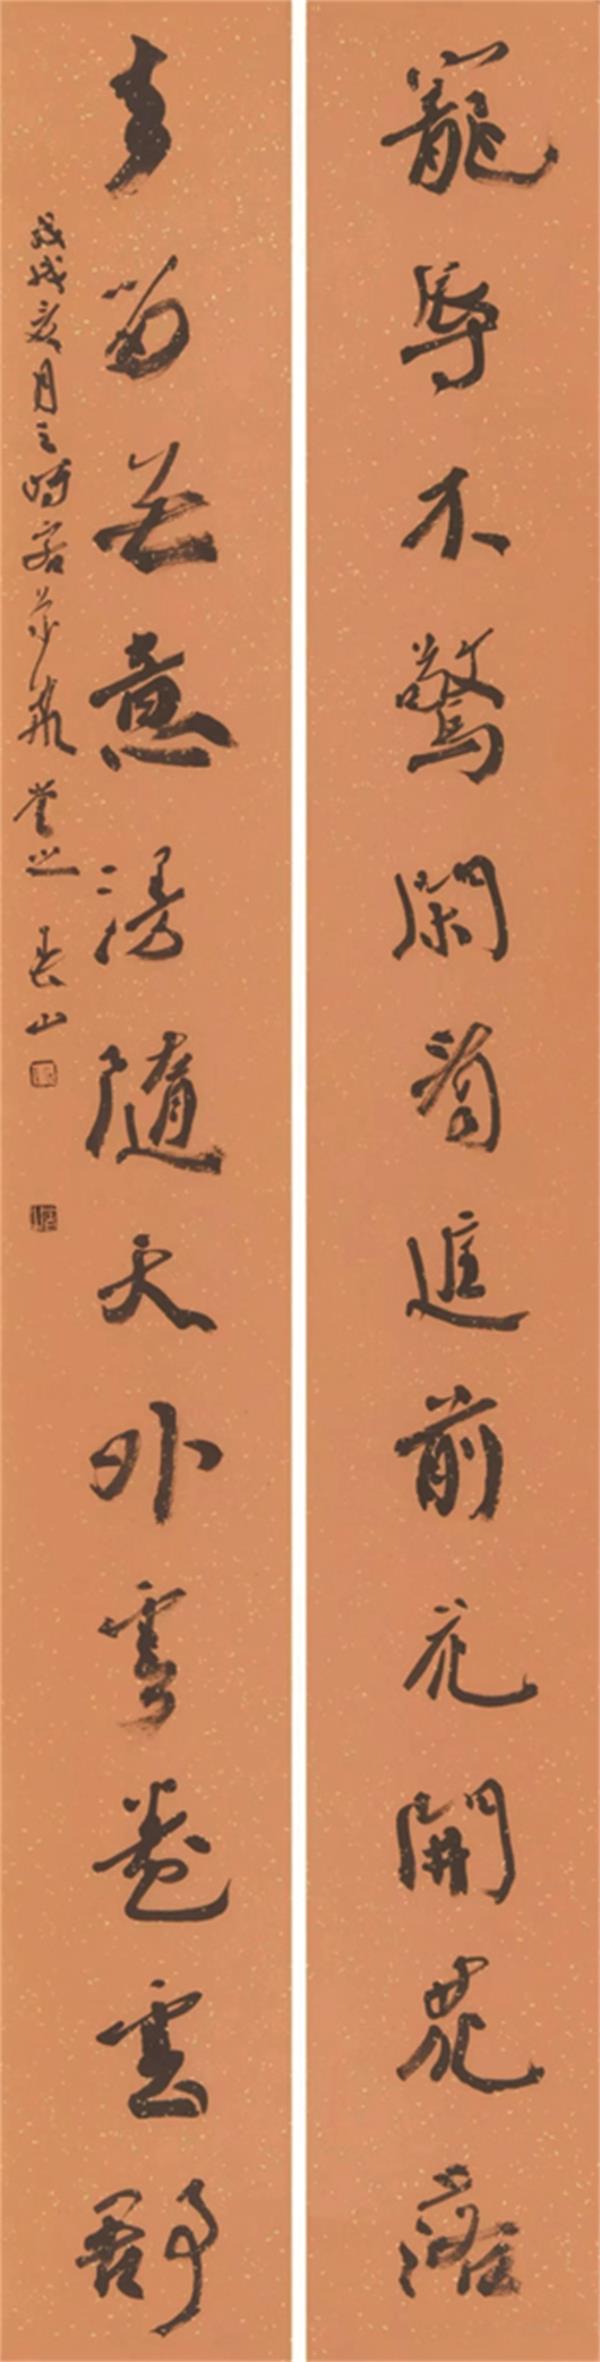 寵辱不驚閑看庭前花開花落
去留無意漫隨天外雲卷雲舒
戊戌亥月之時客京華堂上長山